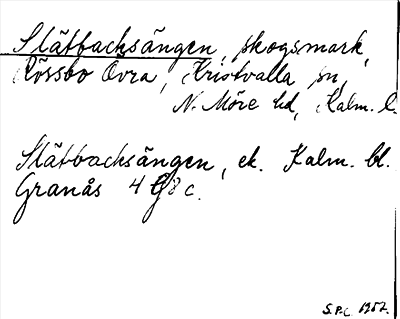 Slätbacksängen, skogsmark,
Rössbo Övra, Kristvalla sn,
N. Möre hd, Kalm. l.
Slätbacksängen, ek. Kalm. bl.
Granås 4 G8 c.
S.P.C. 1957.